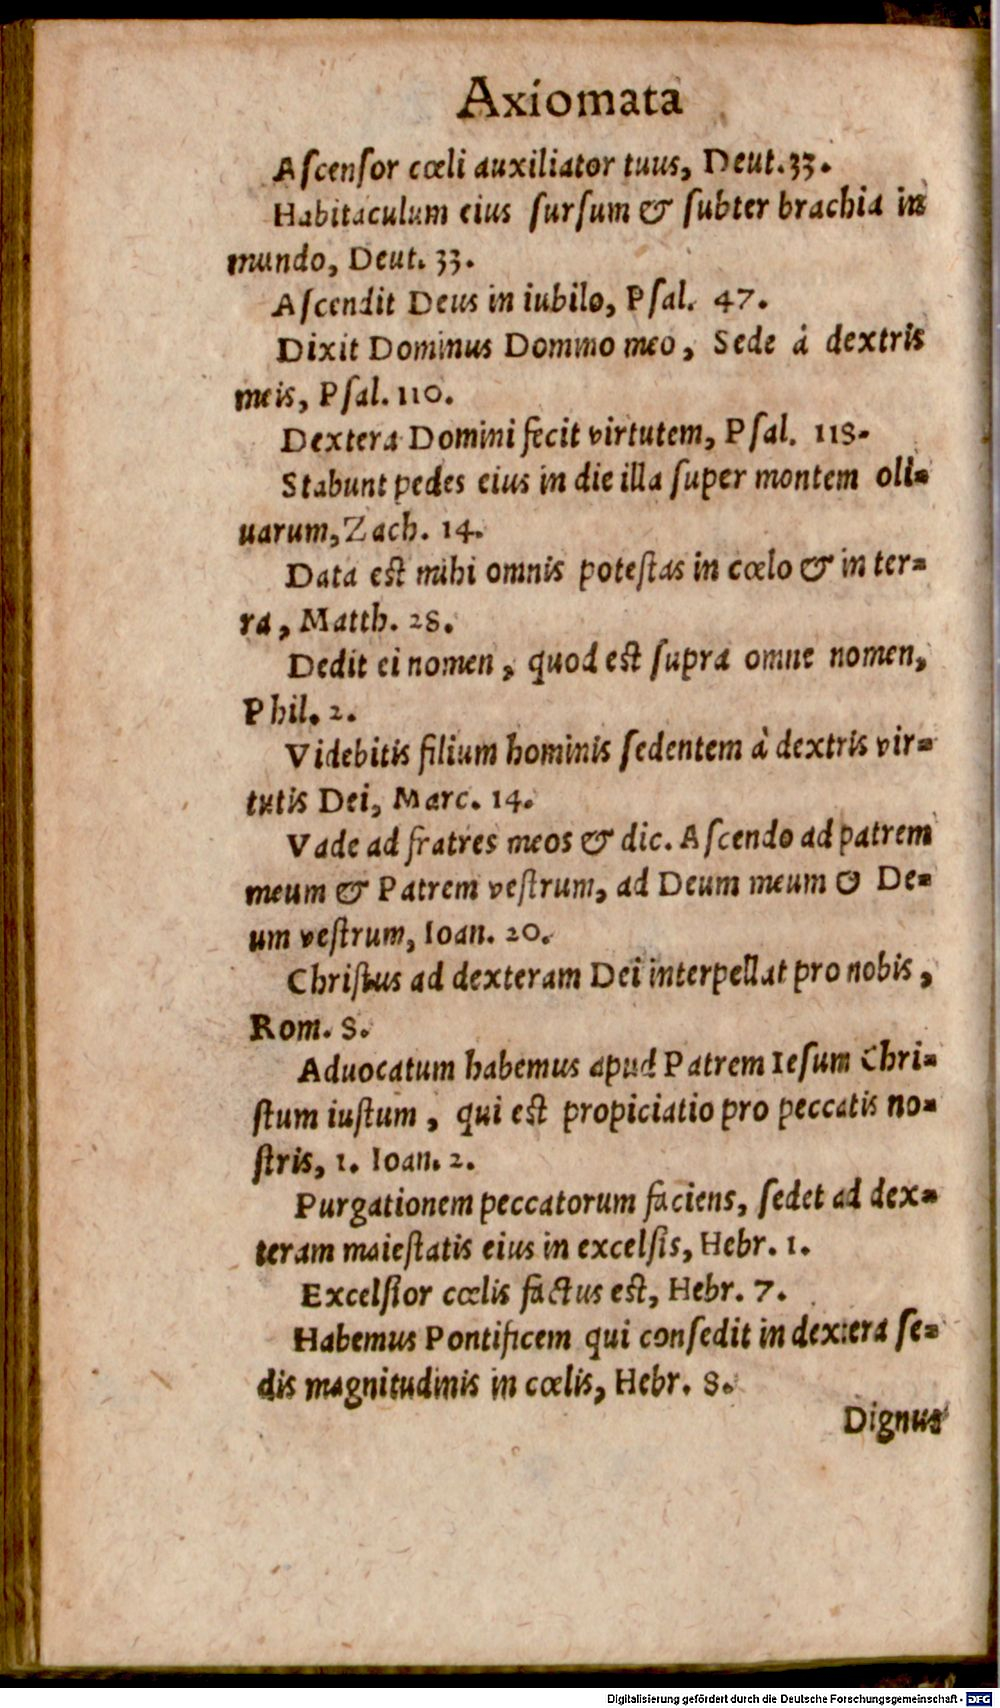 Axiomata
Aſcenſor cœli auxiliator tuus, Deut. 33.
Habitaculum eius ſurſum & ſubter brachia in
mundo, Deut. 33.
Aſcendit Deus in iubilo, Pſal. 47.
Dixit Dominus Domino meo, Sede à dextris
meis, Pſal. 110.
Dextera Domini fecit virtutem, Pſal. 118.
Stabunt pedes eius in die illa ſuper montem oli-
uarum, Zach. 14.
Data eſt mihi omnis poteſtas in cœlo & in ter-
ra, Matth. 28.
Dedit ei nomen, quod eſt ſupra omne nomen,
Phil. 2.
Videbitis filium hominis ſedentem à dextris vir-
tutis Dei, Marc. 14.
Vade ad fratres meos & dic. Aſcendo ad patrem
meum & Patrem veſtrum, ad Deum meum & De-
um veſtrum, Ioan. 20.
Chriſtus ad dexteram Dei interpellat pro nobis,
Rom. 8.
Aduocatum habemus apud Patrem Ieſum Chri-
ſtum iuſtum, qui eſt propiciatio pro peccatis no-
ſtris, 1. Ioan. 2.
Purgationem peccatorum faciens, ſedet ad dex-
teram maieſtatis eius in excelſis, Hebr. 1.
Excelſior cœlis factus eſt, Hebr. 7.
Habemus Pontificem qui conſedit in dextera ſe-
dis magnitudinis in cœlis, Hebr. 8.
Dignus
Digitalisierung gefördert durch die Deutsche Forschungsgemeinschaft - DFG